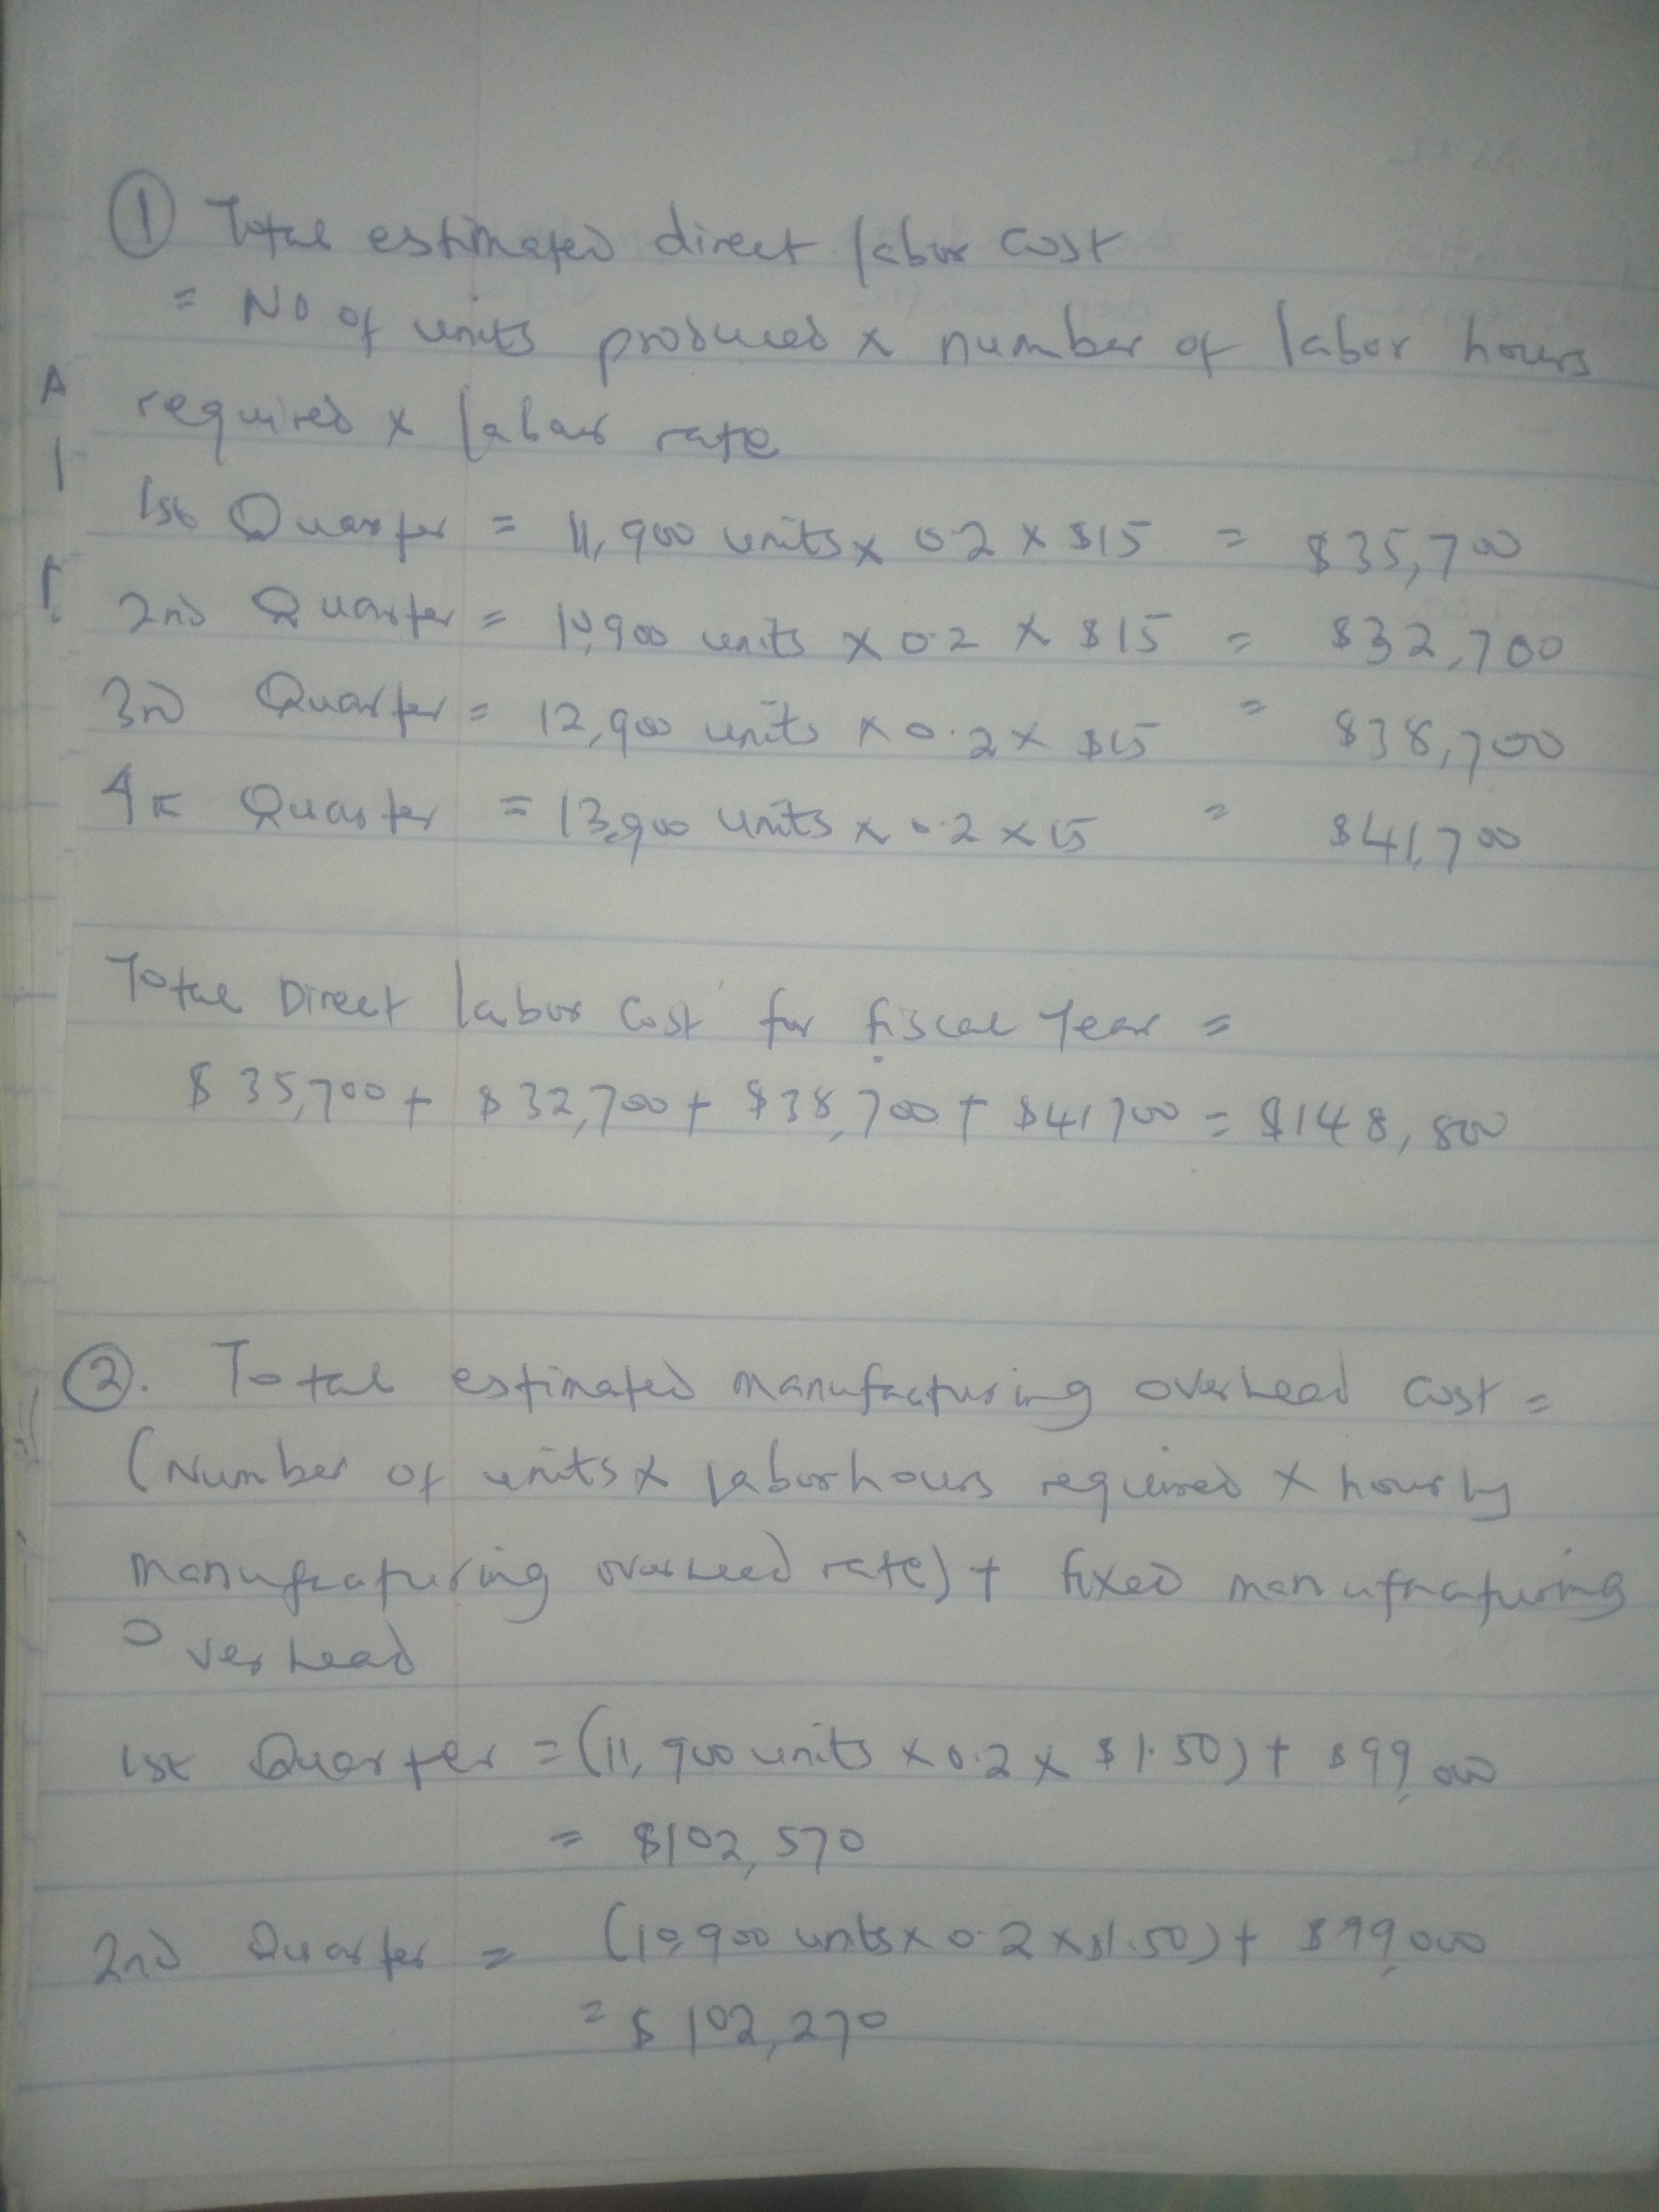 ① Total estimated direct labor cost
= No of units produced x number of labor hours
required x labour rate
1st Quarter = 11,900 units x 0.2 x $15 = $35,700
2nd Quarter = 10,900 units x 0.2 x $15 = $32,700
3rd Quarter = 12,900 units x 0.2 x $15 = $38,700
4th Quarter = 13,900 units x 0.2 x 15 = $41,700
Total Direct labor cost for fiscal Year =
$35,700 + $32,700 + $38,700 + $41700 = $148,800
②. Total estimated manufacturing overhead cost =
(Number of units x labor hours required x hourly
manufacturing overhead rate) + fixed manufacturing
Overhead
1st Quarter = (11,900 units x 0.2 x $1.50) + $99,000
= $102,570
2nd Quarter = (10,900 units x 0.2 x $1.50) + $99,000
= $102,270